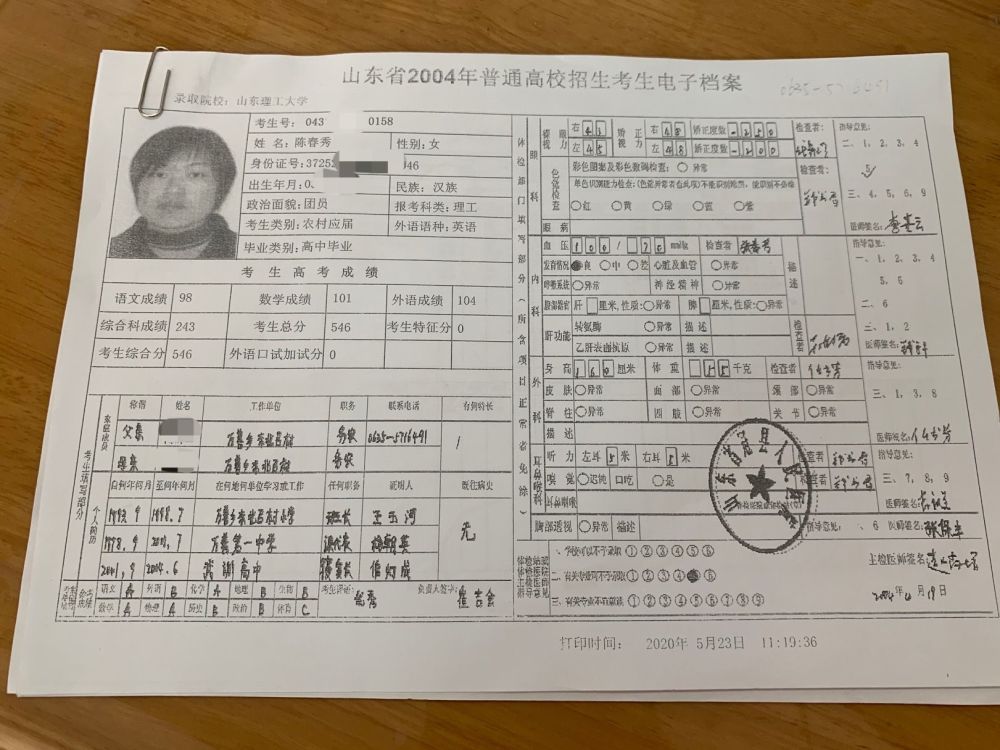 山东省2004年普通高校招生考生电子档案
录取院校: 山东理工大学
考生号: 043 0158
姓 名: 陈春秀 性别: 女
身份证号: 37252 46
出生年月: 民族: 汉族
政治面貌: 团员 报考科类: 理工
考生类别: 农村应届 外语语种: 英语
毕业类别: 高中毕业
考 生 高 考 成 绩
语文成绩 98 数学成绩 101 外语成绩 104
综合科成绩 243 考生总分 546 考生特征分 0
考生综合分 546 外语口试加试分 0
考生填写部分
家庭成员
称谓 姓名 工作单位 职务 联系电话 有何特长
父亲 务农 0635-5716491 /
母亲 务农
个人简历
自何年何月 至何年何月 在何地何单位学习或工作 任何职务 证明人 既往病史
1998.7 班长 无
万善第一中学
2001.9 2004.6 武训高中
语文 A 外语 B 化学 A 地理 B 生物 B
数学 A 物理 A 历史 B 政治 B 体育 C
考生评语: 优秀 负责人签字:
体检部门填写部分(所含项目正常者免综)
眼科
裸眼视力 右 4.3 矫正视力 右 4.8 矫正度数 -250 检查者:
左 4.5 左 4.8 矫正度数 -200
色觉检查
彩色图案及彩色数码检查: 异常 检查者:
单色识别能力检查:
红 黄 绿 蓝 紫
眼病
指导意见:
二、1、2、3、4
5
三、4、5、6、9
医师签名:
内科
血压 100 / 70 mmHg 检查者
发育情况 良 中 差 心脏及血管 异常
呼吸系统 异常 神经精神 异常
腹部器官 肝 厘米,性质: 异常 脾 厘米,性质: 异常
肝功能 转氨酶 异常 描述
乙肝表面抗原 异常 描述
描述
检查者
指导意见:
一、1、2、3、4
5、6
二、6
三、1、2
医师签名:
外科
身高 160 厘米 体重 55 千克 检查者
皮肤 异常 面部 异常 颈部 异常
脊柱 异常 四肢 异常 关节 异常
描述
指导意见:
三、1、3、8
医师签名:
耳鼻喉科
听力 左耳 5 米 右耳 5 米 检查者
嗅觉 迟钝 口吃 是 检查者
耳鼻咽喉
指导意见:
三、7、8、9
医师签名:
胸部透视 异常 描述 指导意见: 、6 医师签名:
一、学校可以不予录取 1 2 3 4 5 6
二、有关专业可不予录取 1 2 3 4 6
三、有关专业不宜就读 1 2 3 4 5 6 7 8 9
主检医师签名
2004年4月19日
山东省冠县人民医院
打印时间: 2020年 5月23日 11:19:36